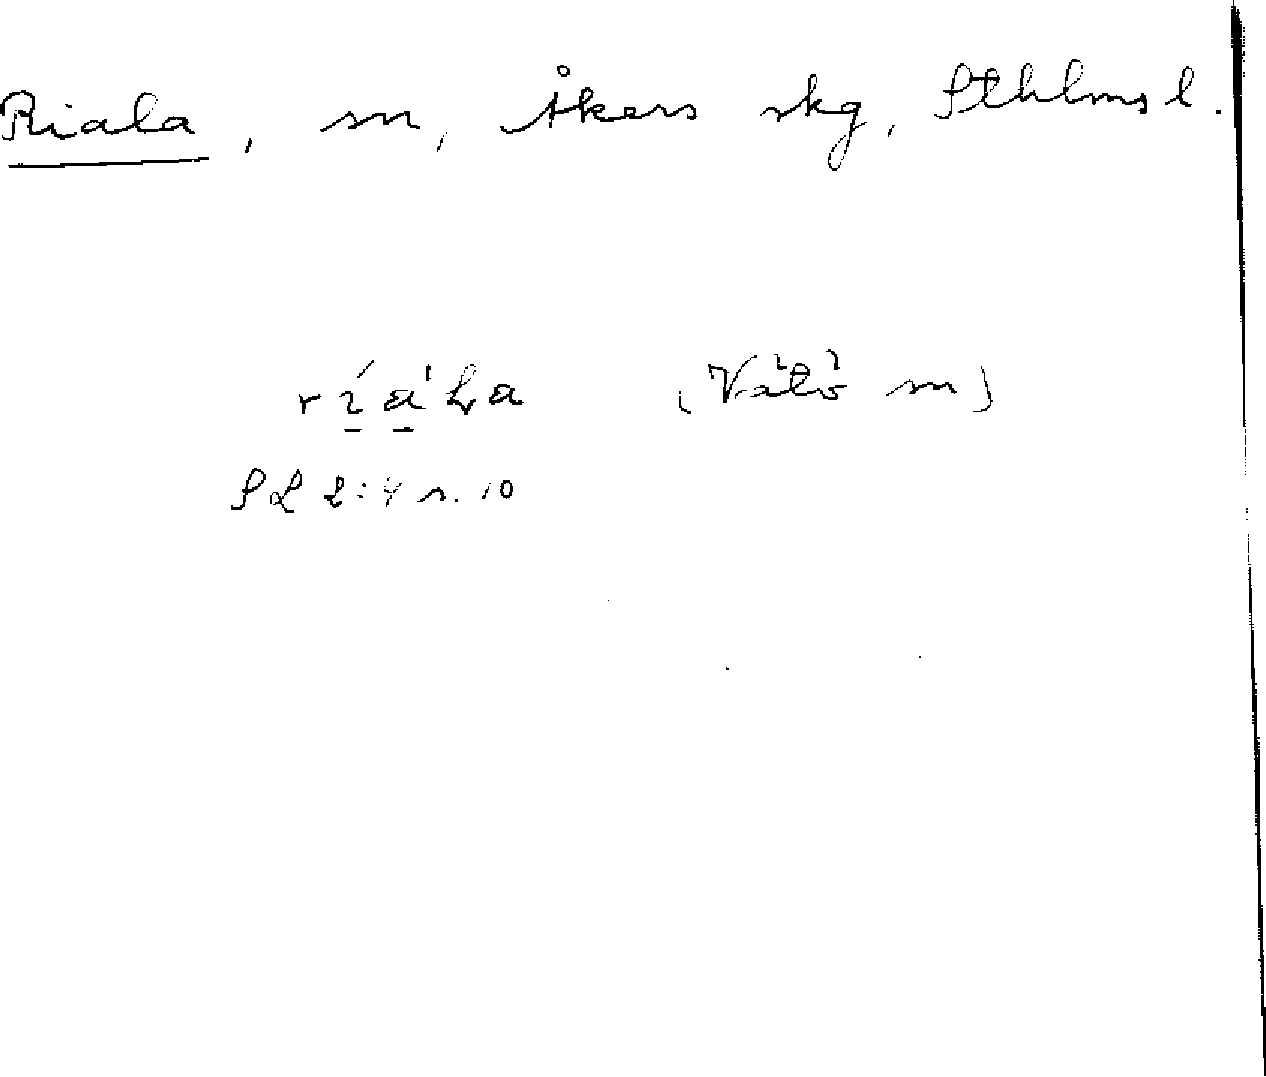 Riala, sn, Åkers skg, Sthlms l.
ríạ'La (Vätö sn)
SL 2:4 s. 10